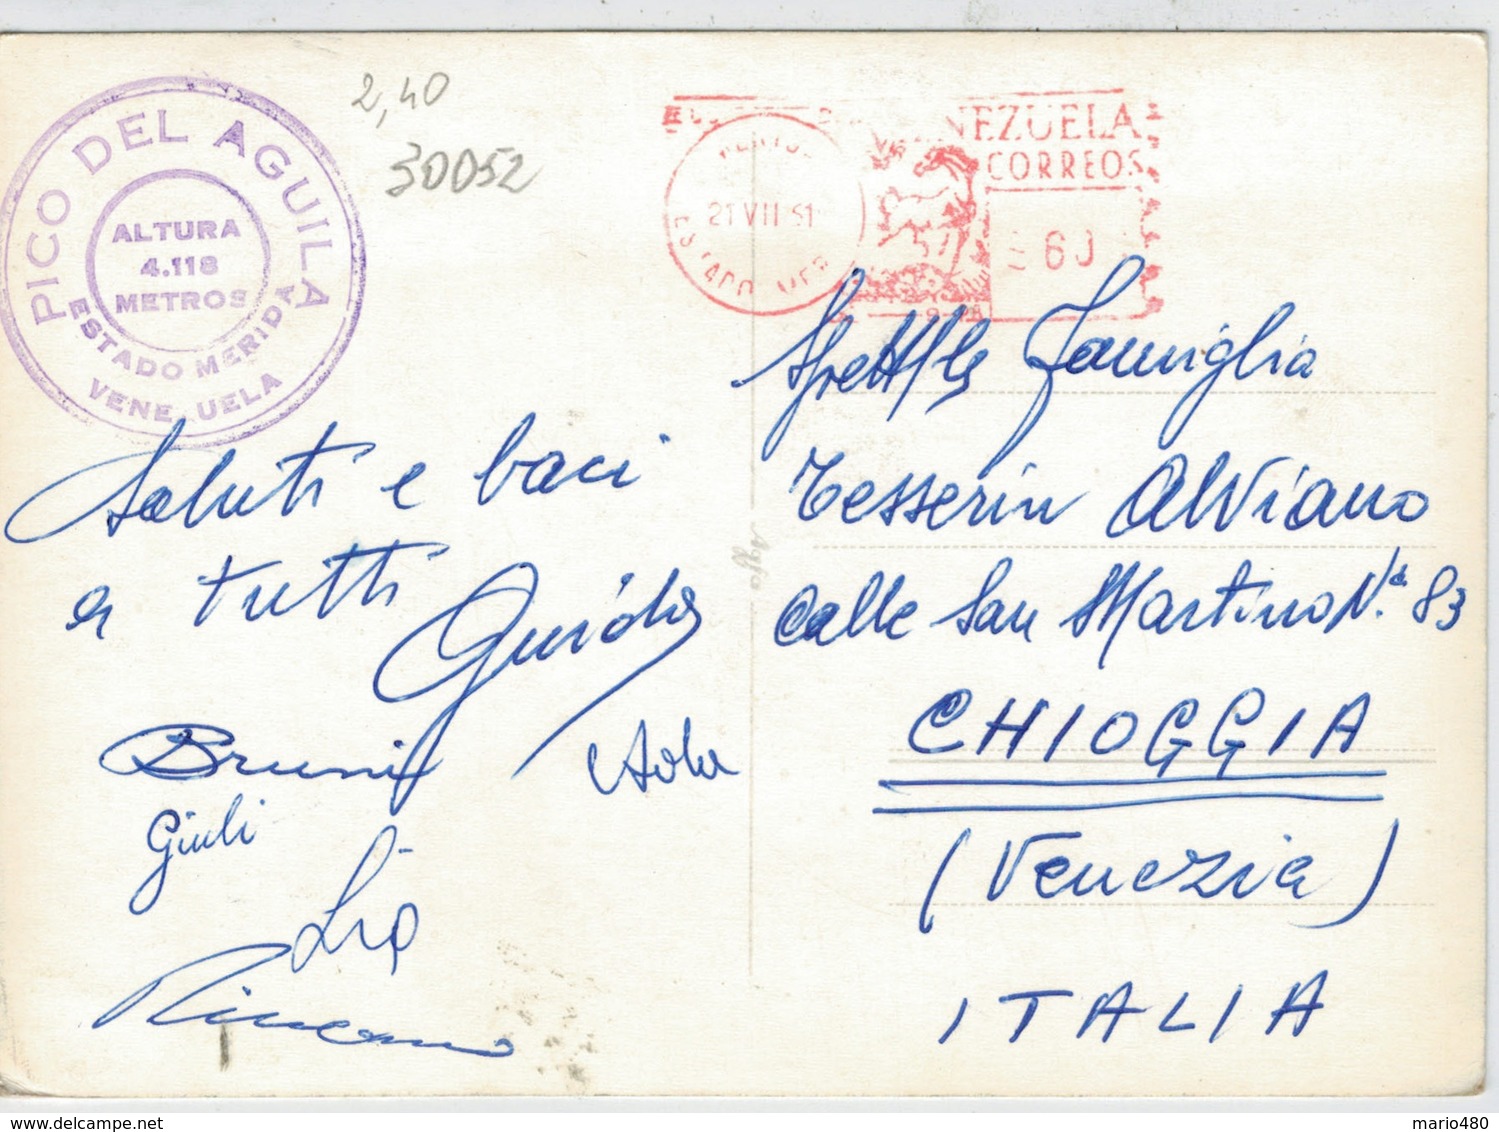 PICO DEL AGUILA
ALTURA
4.118
METROS
ESTADO MERIDA
VENE UELA
2,40
30052
NEZUELA
CORREOS
21 VII 61
ESTADO MER
60
Saluti e baci
a tutti
Guido
Bruni
Giuli
Spett/le Famiglia
Tesserin Alviano
Calle San Martino N.° 83
CHIOGGIA
(Venezia)
ITALIA
Agfa
mario480